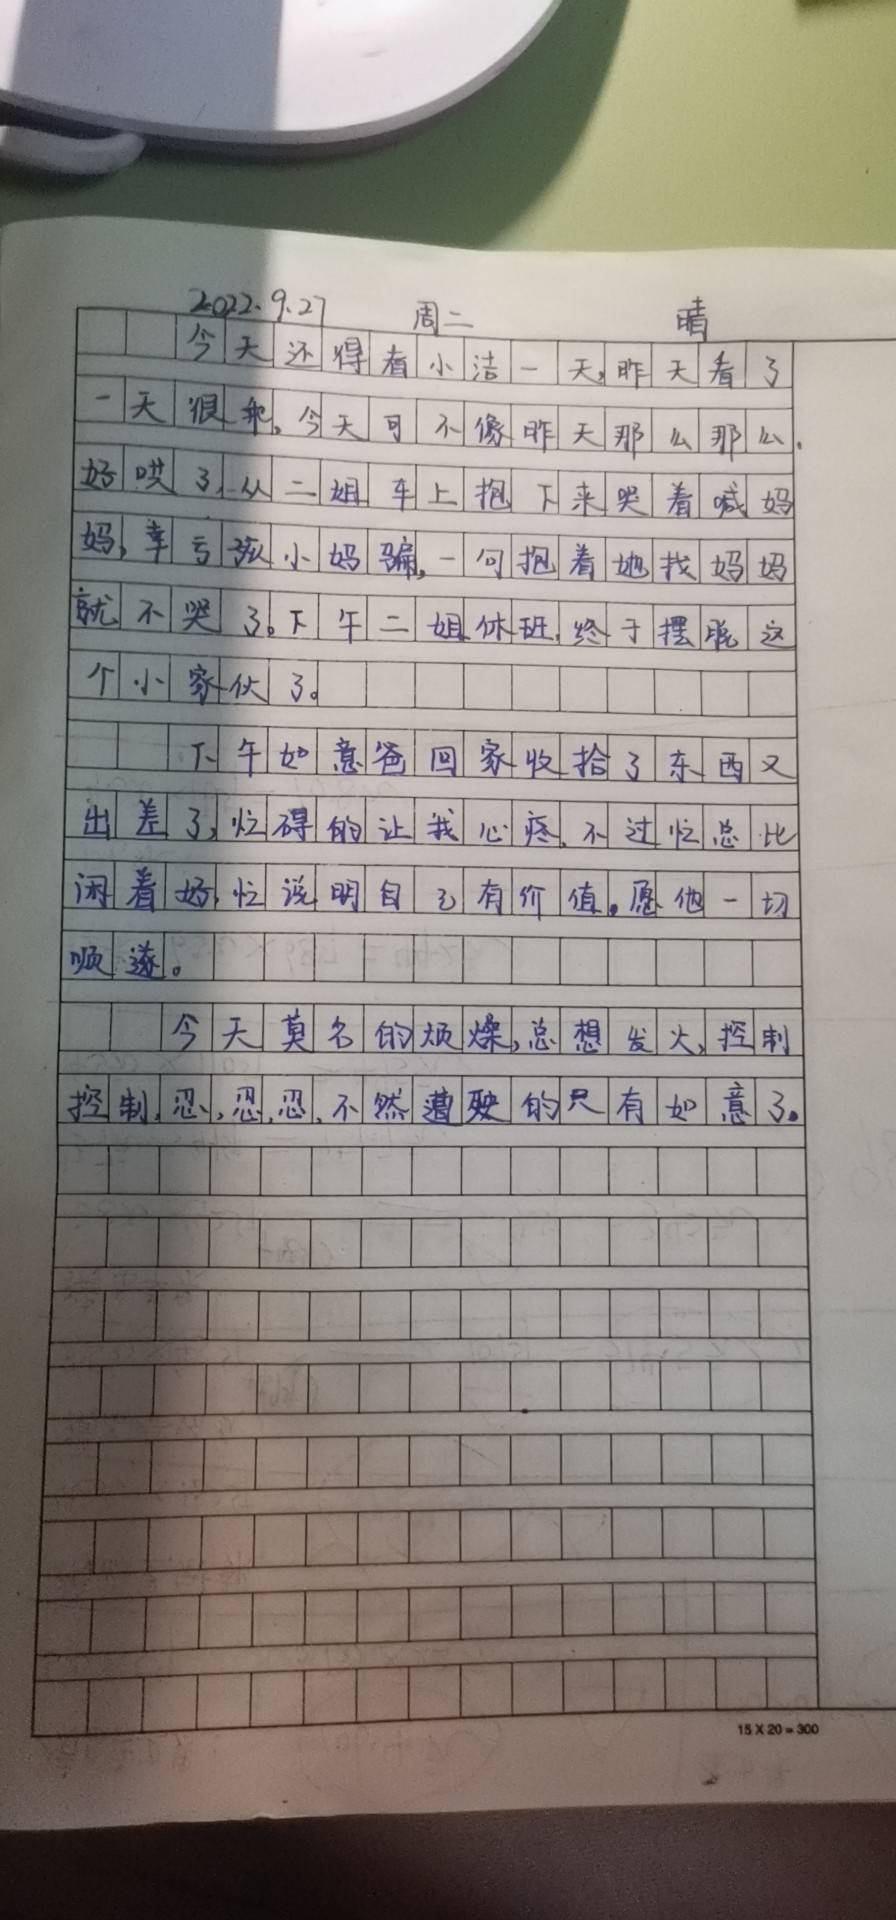 2022.9.27 周二 晴
今天还得看小洁一天,昨天看了
一天很乖,今天可不像昨天那么那么
好哄了,从二姐车上抱下来哭着喊妈
妈,幸亏小妈骗,一句抱着她找妈妈
就不哭了。下午二姐休班,终于摆脱这
个小家伙了。
下午如意爸回家收拾了东西又
出差了,忙碍的让我心疼,不过忙总比
闲着好,忙说明自己有价值。愿他一切
顺遂。
今天莫名的烦燥,总想发火,控制
控制,忍,忍,忍,不然遭殃的只有如意了。
15 X 20 = 300